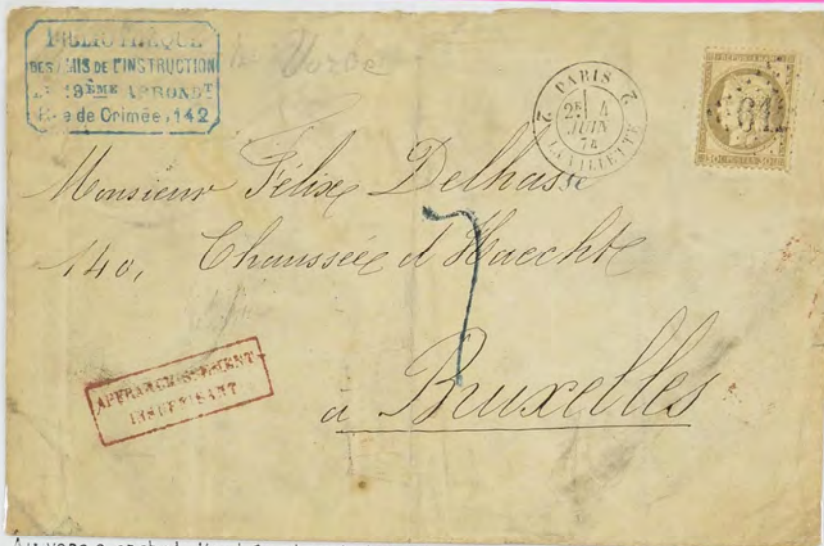 BIBLIOTHÈQUE
DES AMIS DE L'INSTRUCTION
19ÈME ARRONDT
Rue de Crimée, 142
PARIS 2 2
2E 4
JUIN
74
LA VILLETTE
30 POSTES 30
Monsieur Félix Delhasse
140, Chaussée d'Haecht
7
AFFRANCHISSEMENT
INSUFFISANT
à Bruxelles